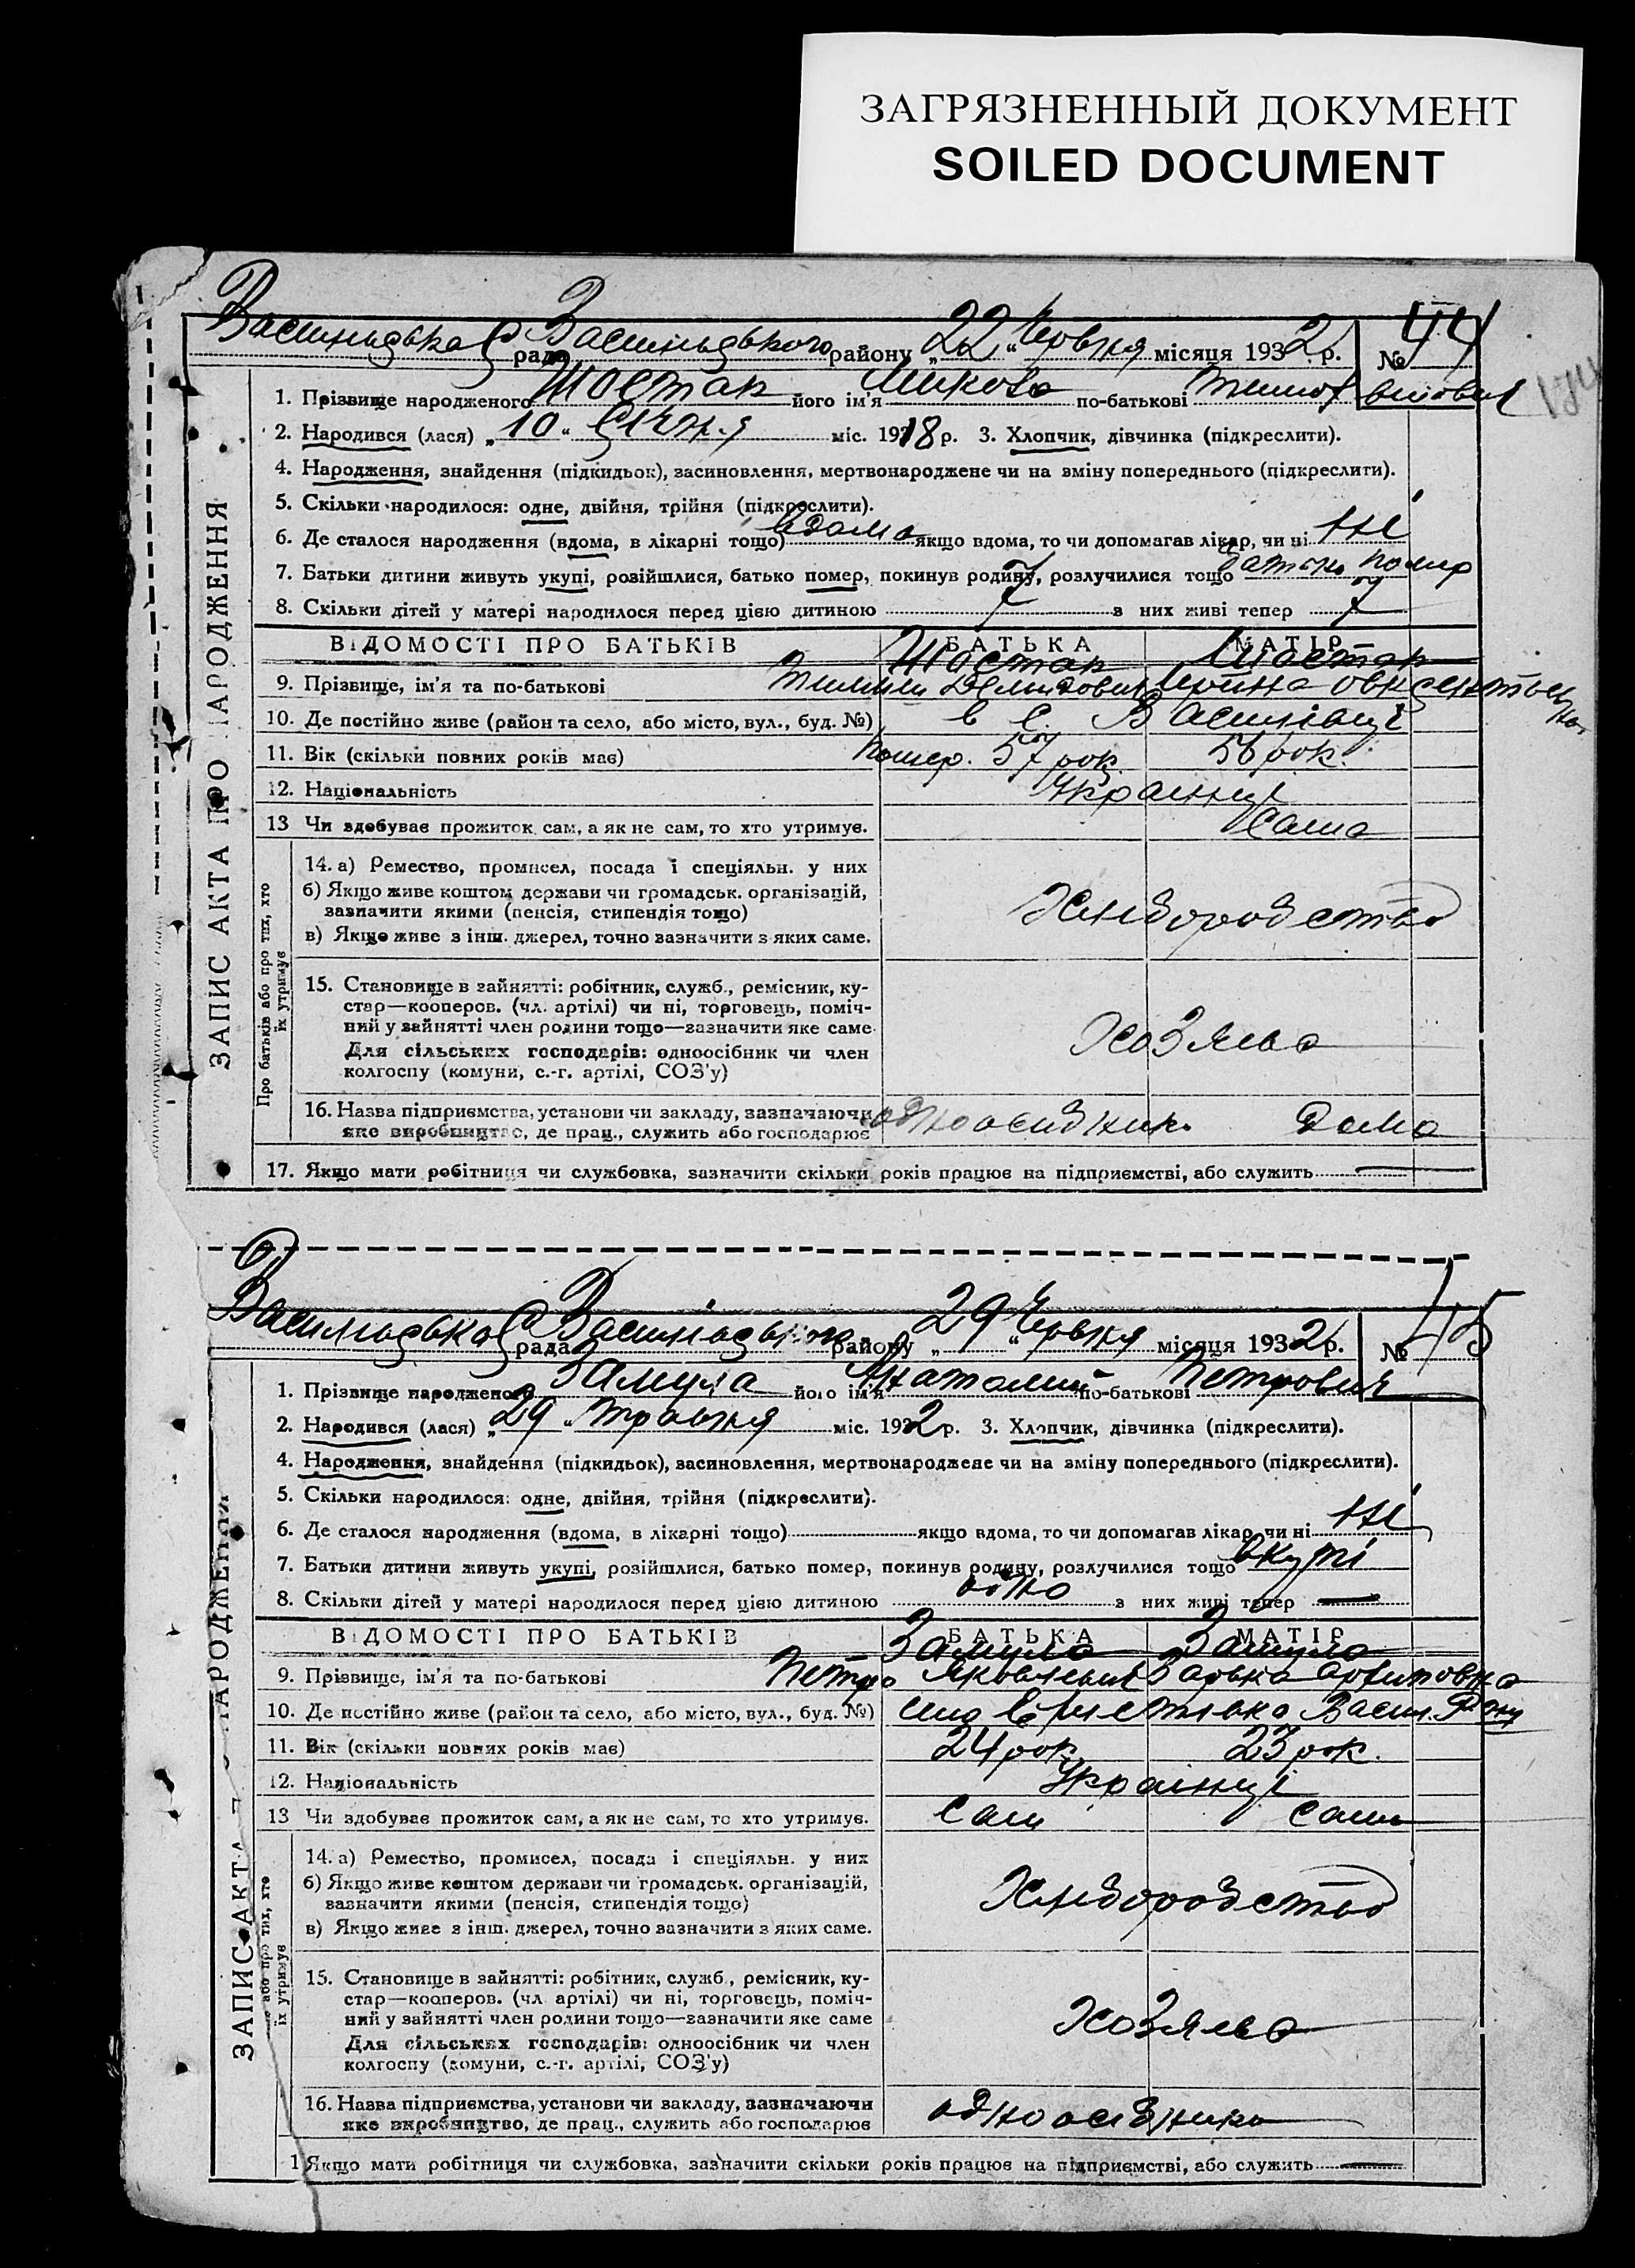 ЗАГРЯЗНЕННЫЙ ДОКУМЕНТ
SOILED DOCUMENT
рада району „22" Червня місяця 1932 р. № 44
1. Прізвище народженого Шостак його ім'я Микола по-батькові
2. Народився (лася) „10" Січня міс. 1918 р. 3. Хлопчик, дівчинка (підкреслити).
4. Народження, знайдення (підкидьок), засиновлення, мертвонароджене чи на зміну попереднього (підкреслити).
5. Скільки народилося: одне, двійня, трійня (підкреслити).
6. Де сталося народження (вдома, в лікарні тощо) вдома якщо вдома, то чи допомагав лікар, чи ні ні
7. Батьки дитини живуть укупі, розійшлися, батько помер, покинув родину, розлучилися тощо батько помер
8. Скільки дітей у матері народилося перед цією дитиною 7 з них живі тепер 7
ЗАПИС АКТА ПРО НАРОДЖЕННЯ
ВІДОМОСТІ ПРО БАТЬКІВ БАТЬКА МАТІР
Шостак Шостак
9. Прізвище, ім'я та по-батькові
10. Де постійно живе (район та село, або місто, вул., буд. №) в с. Василівці
11. Вік (скільки повних років має) помер. 57 рок. 56 рок.
12. Національність Українці
13 Чи здобуває прожиток сам, а як не сам, то хто утримує. Сама
Про батьків або про тих, хто їх утримує
14. а) Ремество, промисел, посада і спеціяльн. у них
б) Якщо живе коштом держави чи громадськ. організацій,
зазначити якими (пенсія, стипендія тощо)
в) Якщо живе з інш. джерел, точно зазначити з яких саме.
Хліборобство
15. Становище в зайнятті: робітник, служб., ремісник, ку-
стар—кооперов. (чл. артілі) чи ні, торговець, поміч-
ний у зайнятті член родини тощо—зазначити яке саме
Для сільських господарів: одноосібник чи член
колгоспу (комуни, с.-г. артілі, СОЗ'у)
16. Назва підприємства, установи чи закладу, зазначаючи
яке виробництво, де прац., служить або господарює
17. Якщо мати робітниця чи службовка, зазначити скільки років працює на підприємстві, або служить —
рада району „29" Червня місяця 1932 р. № 45
1. Прізвище народженого Замула його ім'я Анатолий по-батькові Петрович
2. Народився (лася) „29" Травня міс. 1932 р. 3. Хлопчик, дівчинка (підкреслити).
4. Народження, знайдення (підкидьок), засиновлення, мертвонароджене чи на зміну попереднього (підкреслити).
5. Скільки народилося: одне, двійня, трійня (підкреслити).
6. Де сталося народження (вдома, в лікарні тощо) якщо вдома, то чи допомагав лікар, чи ні ні
7. Батьки дитини живуть укупі, розійшлися, батько помер, покинув родину, розлучилися тощо вкупі
8. Скільки дітей у матері народилося перед цією дитиною одно з них живі тепер —
ЗАПИС АКТА НАРОДЖЕННЯ
ВІДОМОСТІ ПРО БАТЬКІВ БАТЬКА МАТІР
Замула Замула
9. Прізвище, ім'я та по-батькові Петро Яковлевич
10. Де постійно живе (район та село, або місто, вул., буд. №)
11. Вік (скільки повних років має) 24 рок. 23 рок.
12. Національність Українці
13 Чи здобуває прожиток сам, а як не сам, то хто утримує. Сам сама
або про тих, хто їх утримує
14. а) Ремество, промисел, посада і спеціяльн. у них
б) Якщо живе коштом держави чи громадськ. організацій,
зазначити якими (пенсія, стипендія тощо)
в) Якщо живе з інш. джерел, точно зазначити з яких саме.
Хліборобство
15. Становище в зайнятті: робітник, служб., ремісник, ку-
стар—кооперов. (чл. артілі) чи ні, торговець, поміч-
ний у зайнятті член родини тощо—зазначити яке саме
Для сільських господарів: одноосібник чи член
колгоспу (комуни, с.-г. артілі, СОЗ'у)
16. Назва підприємства, установи чи закладу, зазначаючи
яке виробництво, де прац., служить або господарює
1 Якщо мати робітниця чи службовка, зазначити скільки років працює на підприємстві, або служить —